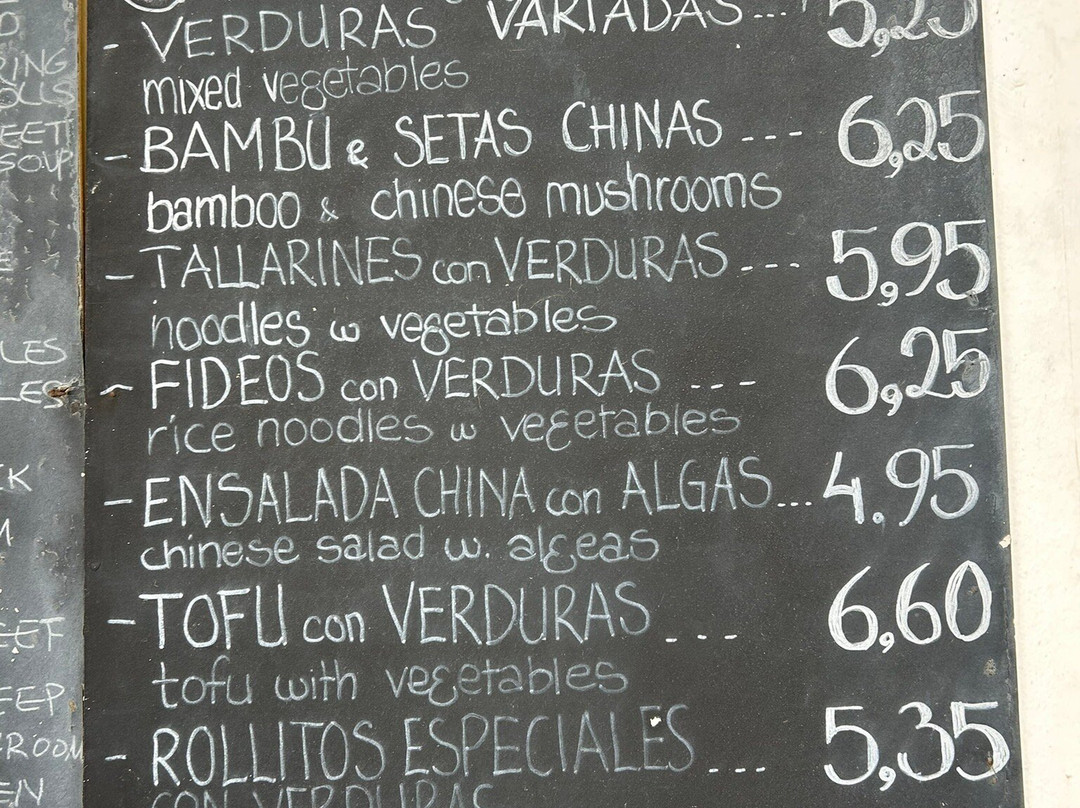 - VERDURAS VARIADAS... 5,25
mixed vegetables
- BAMBÚ e SETAS CHINAS --- 6,25
bamboo & chinese mushrooms
- TALLARINES con VERDURAS --- 5,95
noodles w vegetables
- FIDEOS con VERDURAS --- 6,25
rice noodles w vegetables
- ENSALADA CHINA con ALGAS... 4.95
chinese salad w. algeas
- TOFU con VERDURAS --- 6,60
tofu with vegetables
- ROLLITOS ESPECIALES --- 5,35
CON VERDURAS
RING
OLLS
EET
SOUP
LES
LES
K
M
EEP
ROOM
EN